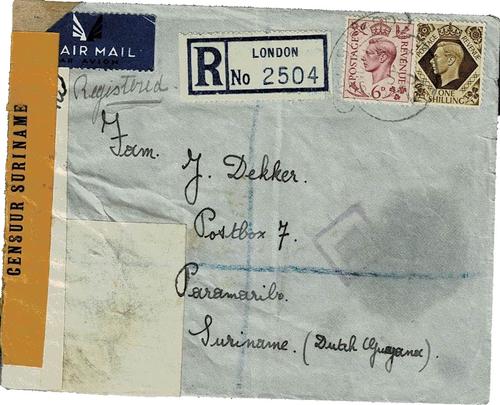 AIR MAIL
PAR AVION
R
LONDON
No 2504
POSTAGE REVENUE
6D
ONE
SHILLING
Registered
CENSUUR SURINAME
Fam. J. Dekker.
Postbox 7.
Paramaribo.
Suriname. (Dutch Guyana).